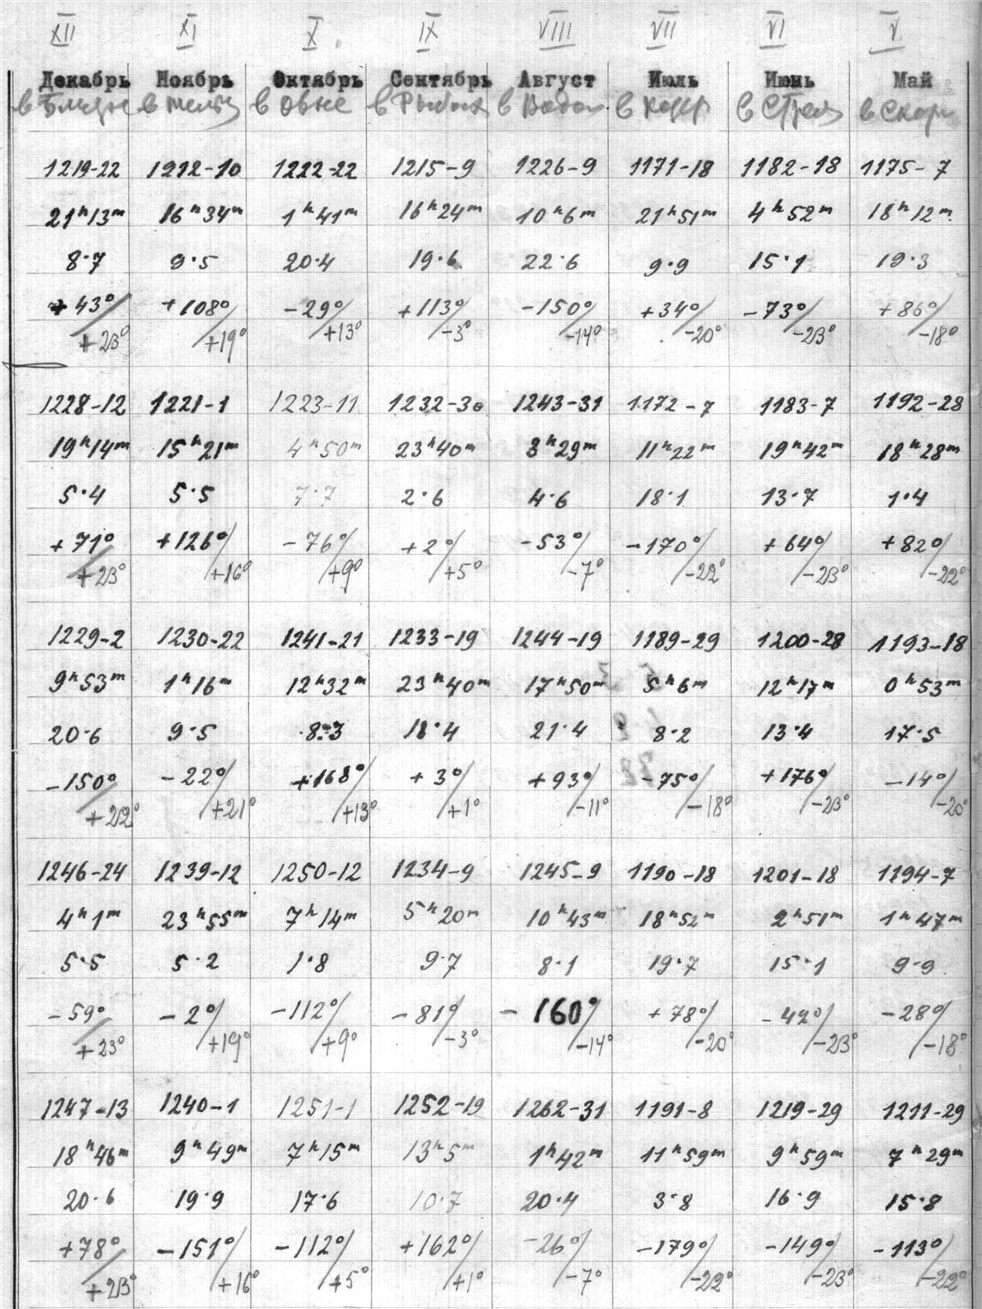 XII XI X. IX VIII VII VI V
Декабрь Ноябрь Октябрь Сентябрь Август Июль Июнь Май
в Близн в Тельц в Овне в Рыбах в Водол в Козер в Стрел в Скорп
1219-22 1212-10 1222-22 1215-9 1226-9 1171-18 1182-18 1175-7
21ʰ13ᵐ 16ʰ34ᵐ 1ʰ41ᵐ 16ʰ24ᵐ 10ʰ6ᵐ 21ʰ51ᵐ 4ʰ52ᵐ 18ʰ12ᵐ
8·7 9·5 20·4 19·6 22·6 9·9 15·1 19·3
+43°/ +108°/ -29°/ +113°/ -150°/ +34°/ -73°/ +86°/
+23° +19° +13° -3° -14° -20° -23° -18°
1228-12 1221-1 1223-11 1232-30 1243-31 1172-7 1183-7 1192-28
19ʰ14ᵐ 15ʰ21ᵐ 4ʰ50ᵐ 23ʰ40ᵐ 3ʰ29ᵐ 11ʰ22ᵐ 19ʰ42ᵐ 18ʰ28ᵐ
5·4 5·5 7·7 2·6 4·6 18·1 13·7 1·4
+71°/ +126°/ -76°/ +2°/ -53°/ -170°/ +64°/ +82°/
+23° +16° +9° +5° -7° -22° -23° -22°
1229-2 1230-22 1241-21 1233-19 1244-19 1189-29 1200-28 1193-18
9ʰ53ᵐ 1ʰ16ᵐ 12ʰ32ᵐ 23ʰ40ᵐ 17ʰ50ᵐ 5ʰ6ᵐ 12ʰ17ᵐ 0ʰ53ᵐ
20·6 9·5 8·3 18·4 21·4 8·2 13·4 17·5
-150°/ -22°/ +168°/ +3°/ +93°/ -75°/ +176°/ -14°/
+22° +21° +13° +1° -11° -18° -23° -20°
1246-24 1239-12 1250-12 1234-9 1245-9 1190-18 1201-18 1194-7
4ʰ1ᵐ 23ʰ55ᵐ 7ʰ14ᵐ 5ʰ20ᵐ 10ʰ43ᵐ 18ʰ52ᵐ 2ʰ51ᵐ 1ʰ47ᵐ
5·5 5·2 1·8 9·7 8·1 19·7 15·1 9·9
-59°/ -2°/ -112°/ -81°/ -160°/ +78°/ -42°/ -28°/
+23° +19° +9° -3° -14° -20° -23° -18°
1247-13 1240-1 1251-1 1252-19 1262-31 1191-8 1219-29 1211-29
18ʰ46ᵐ 9ʰ49ᵐ 7ʰ15ᵐ 13ʰ5ᵐ 1ʰ42ᵐ 11ʰ59ᵐ 9ʰ59ᵐ 7ʰ29ᵐ
20·6 19·9 17·6 10·7 20·4 3·8 16·9 15·8
+78°/ -151°/ -112°/ +162°/ -26°/ -179°/ -149°/ -113°/
+23° +16° +5° +1° -7° -22° -23° -22°